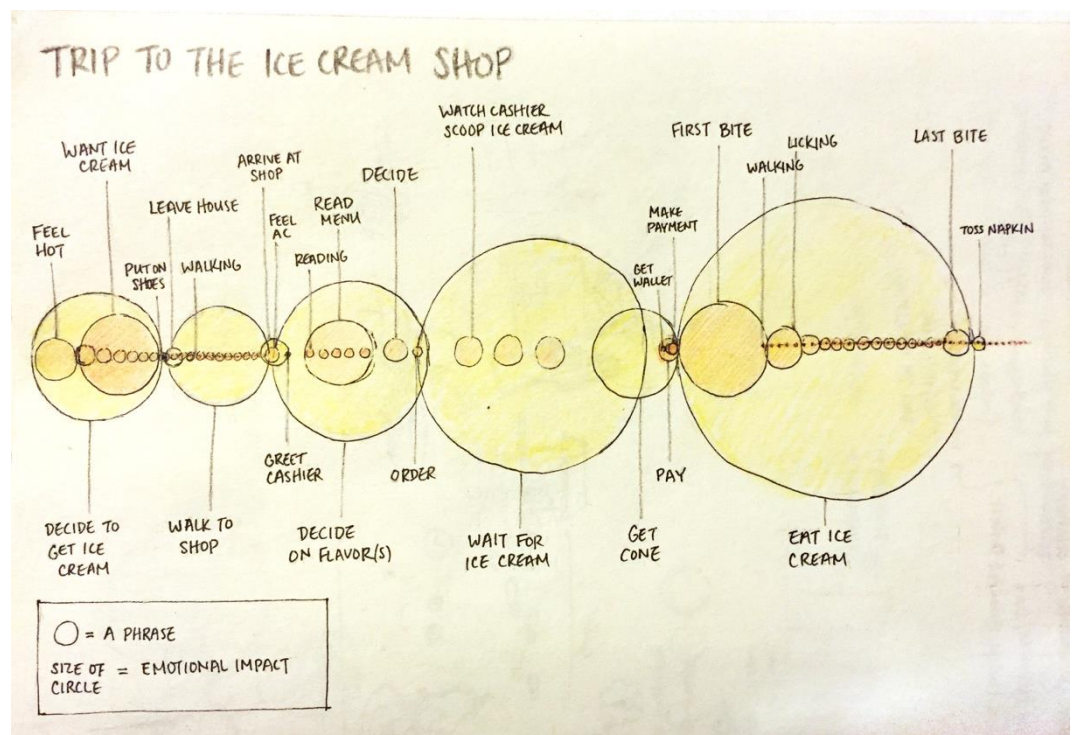 TRIP TO THE ICE CREAM SHOP
FEEL
HOT
WANT ICE
CREAM
PUT ON
SHOES
LEAVE HOUSE
WALKING
ARRIVE AT
SHOP
FEEL
AC
READING
READ
MENU
DECIDE
WATCH CASHIER
SCOOP ICE CREAM
GET
WALLET
MAKE
PAYMENT
FIRST BITE
WALKING
LICKING
LAST BITE
TOSS NAPKIN
DECIDE TO
GET ICE
CREAM
WALK TO
SHOP
GREET
CASHIER
DECIDE
ON FLAVOR(S)
ORDER
WAIT FOR
ICE CREAM
GET
CONE
PAY
EAT ICE
CREAM
= A PHRASE
SIZE OF = EMOTIONAL IMPACT
CIRCLE